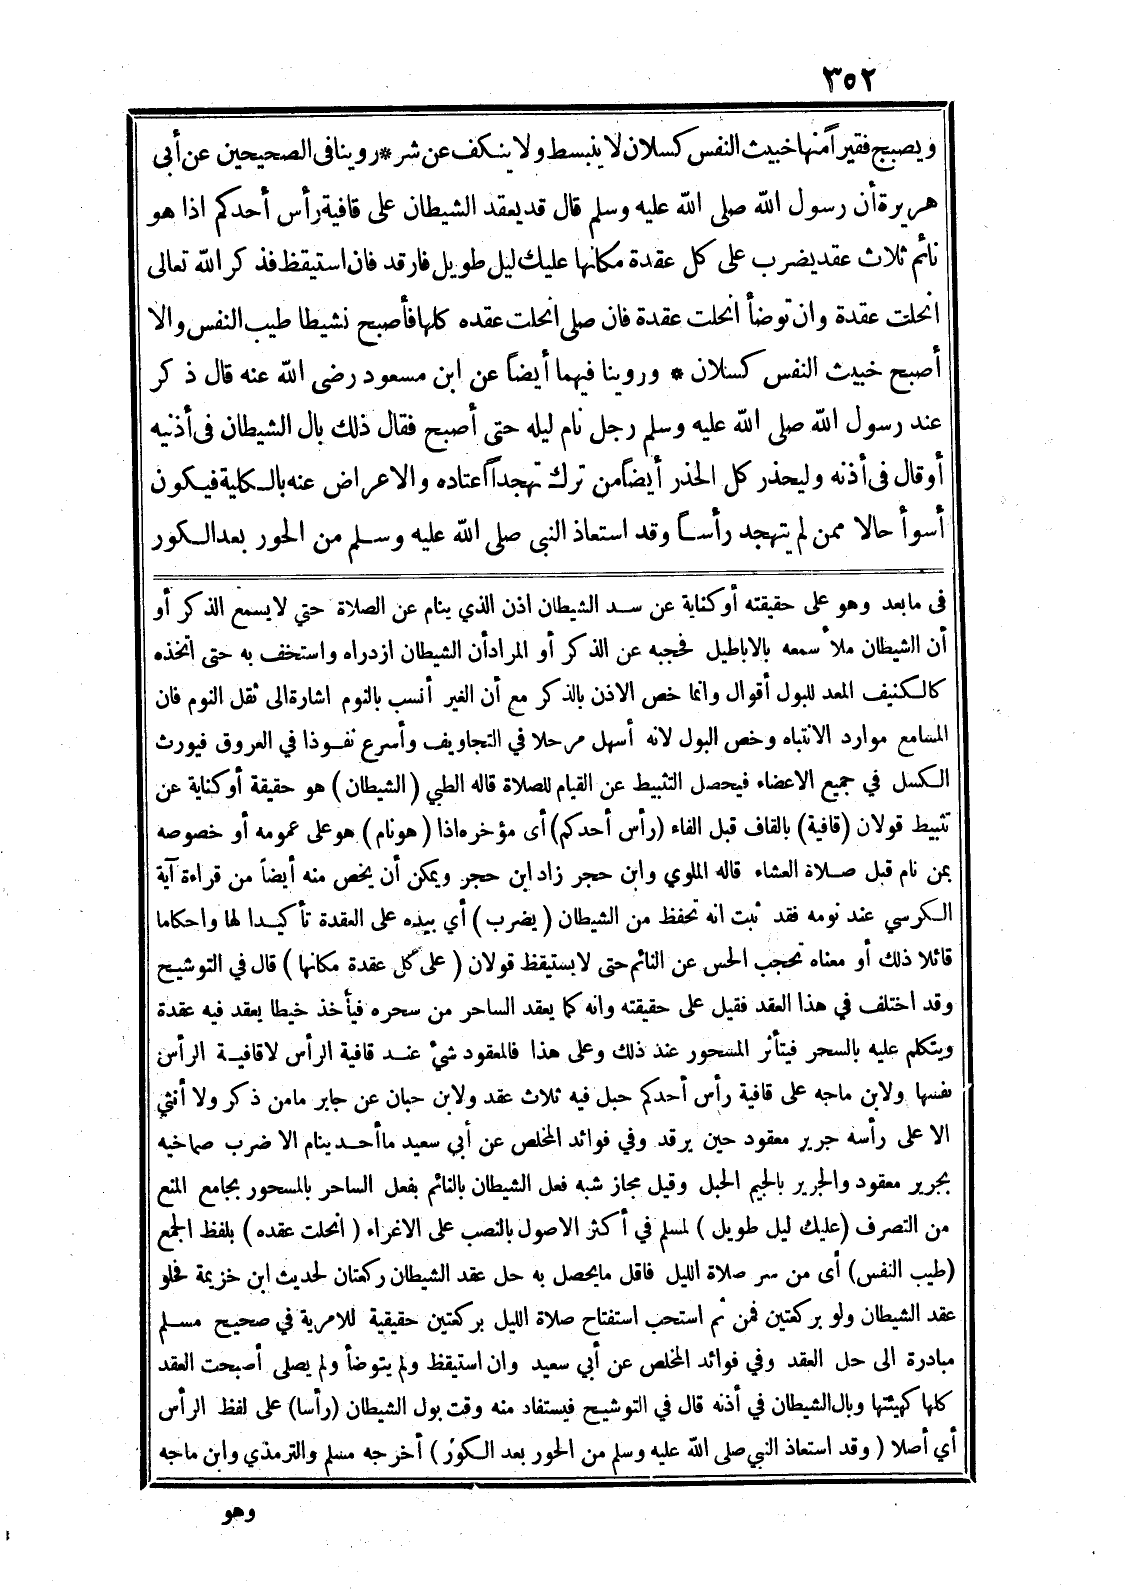 ٣٥٢
ويصبح فقيراً منها خبيث النفس كسلان لا ينبسط ولا ينكف عن شر * روينا فى الصحيحين عن أبى
هريرة أن رسول الله صلى الله عليه وسلم قال قد يعقد الشيطان على قافية رأس أحدكم اذا هو
نائم ثلاث عقد يضرب على كل عقدة مكانها عليك ليل طويل فارقد فان استيقظ فذكر الله تعالى
انحلت عقدة وان توضأ انحلت عقدة فان صلى انحلت عقده كلها فأصبح نشيطا طيب النفس والا
أصبح خبيث النفس كسلان * وروينا فيهما أيضاً عن ابن مسعود رضى الله عنه قال ذكر
عند رسول الله صلى الله عليه وسلم رجل نام ليله حتى أصبح فقال ذلك بال الشيطان فى أذنيه
أو قال فى أذنه وليحذر كل الحذر أيضاً من ترك تهجداً اعتاده والاعراض عنه بالكلية فيكون
أسوأ حالا ممن لم يتهجد رأساً وقد استعاذ النبى صلى الله عليه وسلم من الحور بعد الكور
فى ما بعد وهو على حقيقته أو كناية عن سد الشيطان اذن الذي ينام عن الصلاة حتي لا يسمع الذكر أو
أن الشيطان ملأ سمعه بالاباطيل فحجبه عن الذكر أو المراد أن الشيطان ازدراه واستخف به حتى اتخذه
كالكنيف المعد للبول أقوال وانما خص الاذن بالذكر مع أن الغير أنسب بالنوم اشارة الى ثقل النوم فان
المسامع موارد الانتباه وخص البول لانه أسهل مرحلا في التجاويف وأسرع نفوذا في العروق فيورث
الكسل في جميع الاعضاء فيحصل التثبيط عن القيام للصلاة قاله الطيبي (الشيطان) هو حقيقة أو كناية عن
تثبيط قولان (قافية) بالقاف قبل الفاء (رأس أحدكم) أى مؤخره اذا (هو نام) هو على عمومه أو خصوصه
بمن نام قبل صلاة العشاء قاله الملوي وابن حجر زاد ابن حجر ويمكن أن يخص منه أيضاً من قراءة آية
الكرسي عند نومه فقد ثبت انه تحفظ من الشيطان (يضرب) أي بيده على العقدة تأكيدا لها واحكاما
قائلا ذلك أو معناه تحجب الحس عن النائم حتى لا يستيقظ قولان (على كل عقدة مكانها) قال في التوشيح
وقد اختلف في هذا العقد فقيل على حقيقته وانه كما يعقد الساحر من سحره فيأخذ خيطا يعقد فيه عقدة
ويتكلم عليه بالسحر فيتأثر المسحور عند ذلك وعلى هذا فالمعقود شئ عند قافية الرأس لا قافية الرأس
نفسها ولابن ماجه على قافية رأس أحدكم حبل فيه ثلاث عقد ولابن حبان عن جابر ما من ذكر ولا أنثي
الا على رأسه جرير معقود حين يرقد وفي فوائد المخلص عن أبي سعيد ما أحد ينام الا ضرب صماخيه
بجرير معقود والجرير بالجيم الحبل وقيل مجاز شبه فعل الشيطان بالنائم بفعل الساحر بالمسحور بجامع المنع
من التصرف (عليك ليل طويل) لمسلم في أكثر الاصول بالنصب على الاغراء (انحلت عقده) بلفظ الجمع
(طيب النفس) أى من سر صلاة الليل فاقل ما يحصل به حل عقد الشيطان ركعتان لحديث ابن خزيمة فحلو
عقد الشيطان ولو بركعتين فمن ثم استحب استفتاح صلاة الليل بركعتين حقيقية للامرية في صحيح مسلم
مبادرة الى حل العقد وفي فوائد المخلص عن أبي سعيد وان استيقظ ولم يتوضأ ولم يصلى أصبحت العقد
كلها كهيئتها وبال الشيطان في أذنه قال في التوشيح فيستفاد منه وقت بول الشيطان (رأسا) على لفظ الرأس
أي أصلا (وقد استعاذ النبي صلى الله عليه وسلم من الحور بعد الكور) أخرجه مسلم والترمذي وابن ماجه
وهو